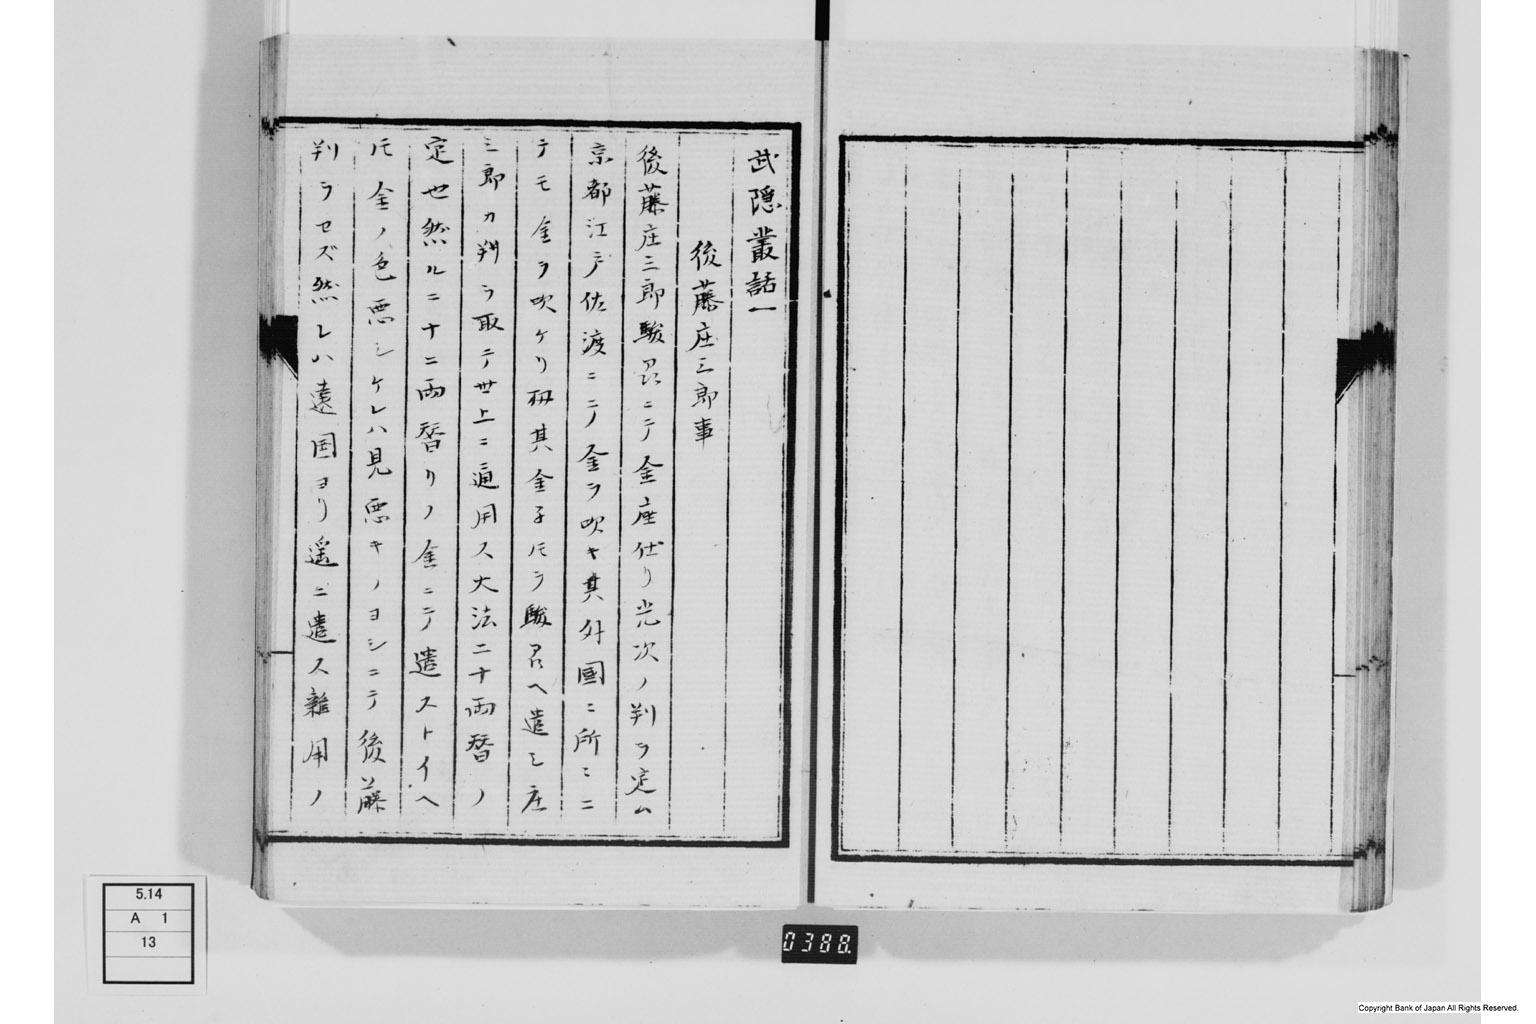 武隠叢話一
後藤庄三郎事
後藤庄三郎駿君ニテ金座仕リ光次ノ判ヲ定ム
京都江戸佐渡ニテ金ヲ吹キ其外國ニ所ニニ
テモ金ヲ吹ケリ扨其金子ヲ駿君ヘ遣シ庄
三郎カ判ヲ取テ世上ニ通用ス大法二十両替ノ
定也然ルニ十ニ両替リノ金ニテ遣ストイヘ
𪜈金ノ色悪シケレハ見悪キノヨシニテ後藤
判ヲセズ然レハ遠国ヨリ遥ニ遣ス雑用ノ
5.14
A 1
13
0388.
Copyright Bank of Japan All Rights Reserved.